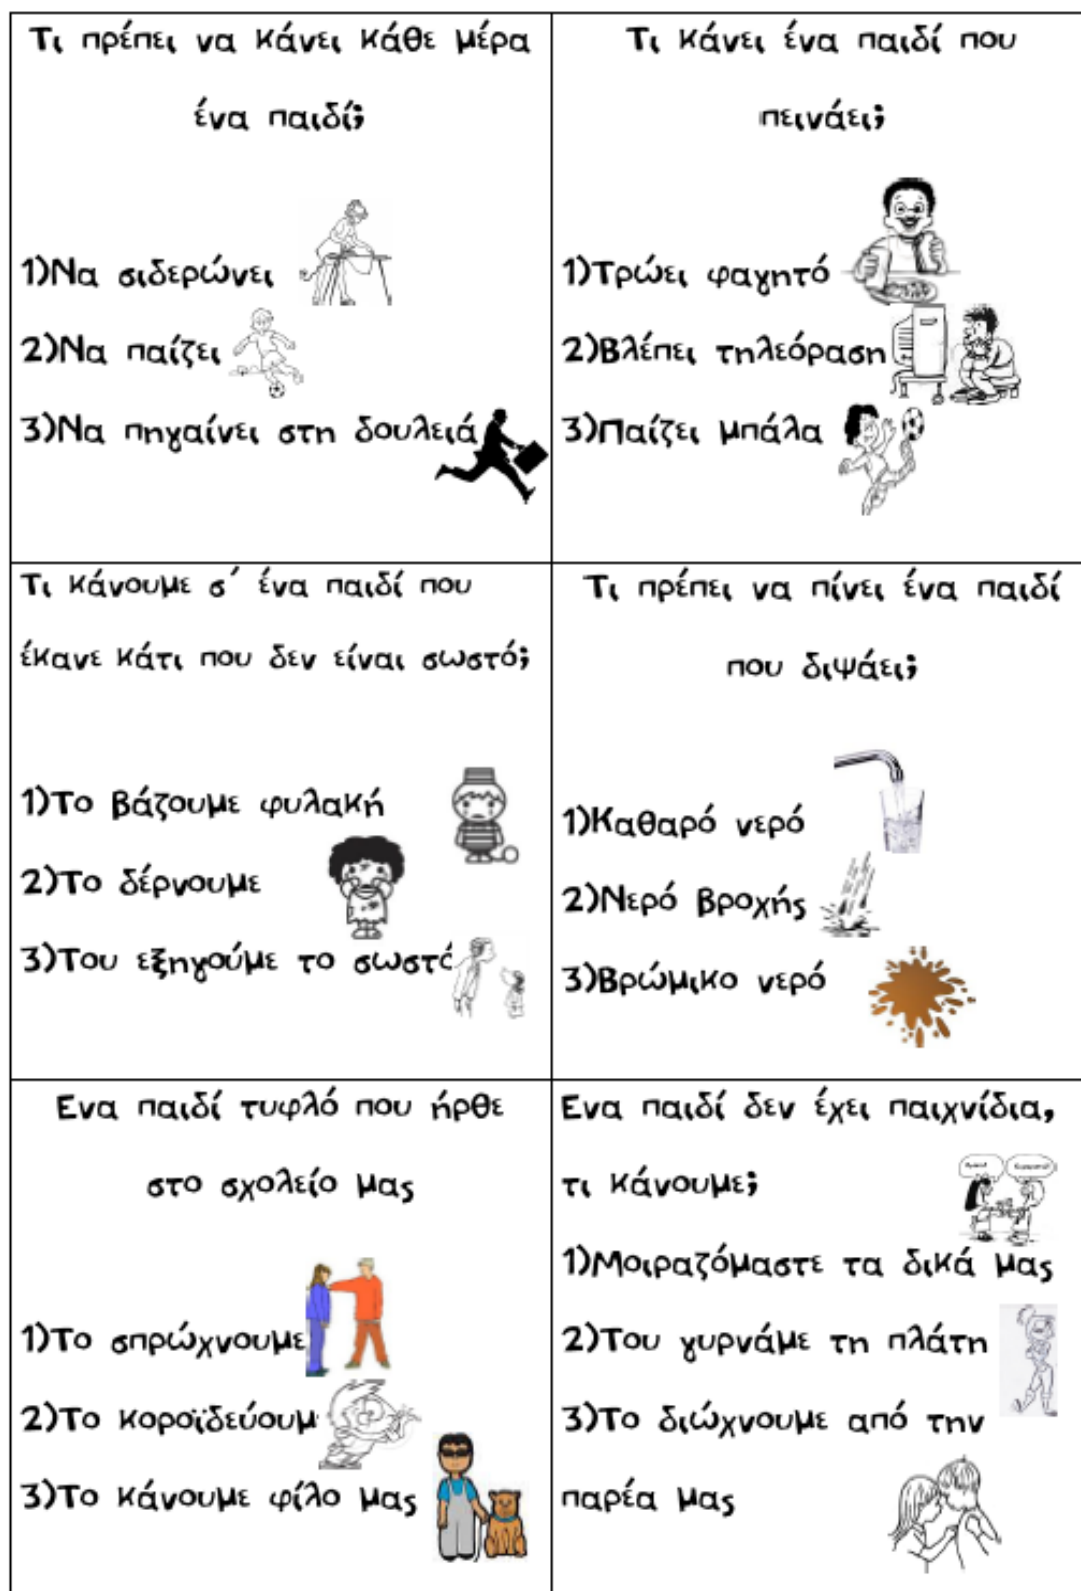 Τι πρέπει να κάνει κάθε μέρα
ένα παιδί;
1)Να σιδερώνει
2)Να παίζει
3)Να πηγαίνει στη δουλειά
Τι κάνει ένα παιδί που
πεινάει;
1)Τρώει φαγητό
2)Βλέπει τηλεόραση
3)Παίζει μπάλα
Τι κάνουμε σ΄ ένα παιδί που
έκανε κάτι που δεν είναι σωστό;
1)Το βάζουμε φυλακή
2)Το δέρνουμε
3)Του εξηγούμε το σωστό
Τι πρέπει να πίνει ένα παιδί
που διψάει;
1)Καθαρό νερό
2)Νερό βροχής
3)Βρώμικο νερό
Ενα παιδί τυφλό που ήρθε
στο σχολείο μας
1)Το σπρώχνουμε
2)Το κοροϊδεύουμ
3)Το κάνουμε φίλο μας
Ενα παιδί δεν έχει παιχνίδια,
τι κάνουμε;
1)Μοιραζόμαστε τα δικά μας
2)Του γυρνάμε τη πλάτη
3)Το διώχνουμε από την
παρέα μας